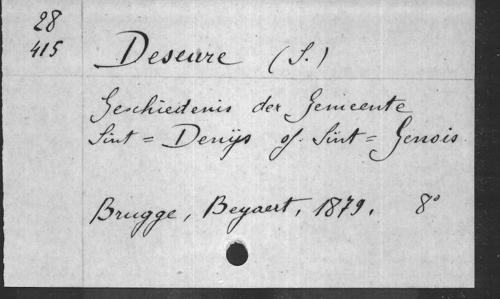 28
415
Deseure (S.)
Geschiedenis der Gemeente
Sint = Denijs of Sint = Genois.
Brugge, Beyaert, 1879. 8°